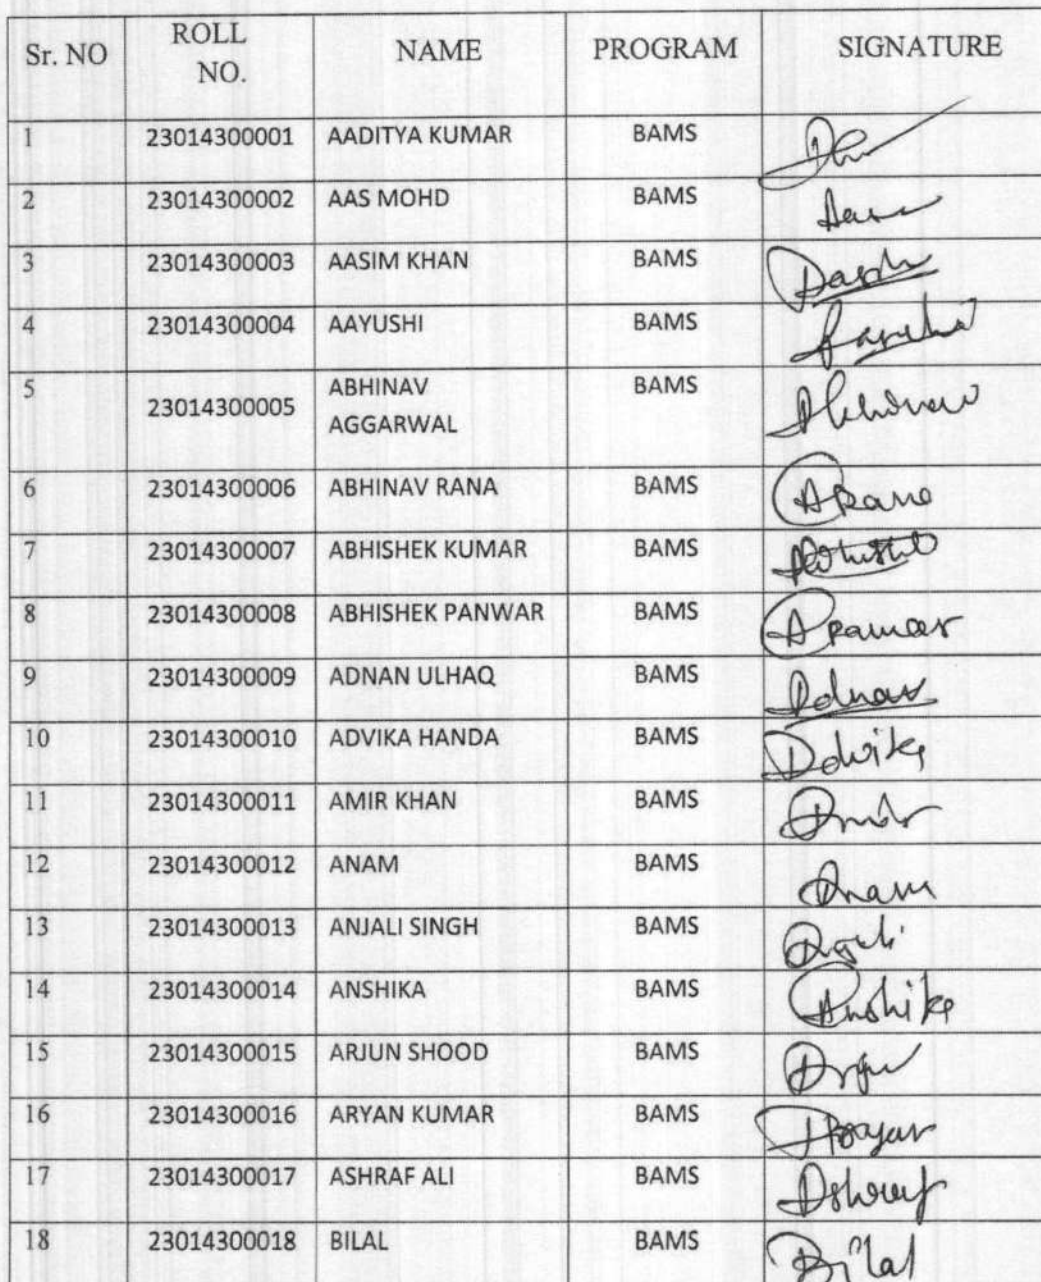 Sr. NO ROLL NO. NAME PROGRAM SIGNATURE
1 23014300001 AADITYA KUMAR BAMS
2 23014300002 AAS MOHD BAMS
3 23014300003 AASIM KHAN BAMS
4 23014300004 AAYUSHI BAMS
5 23014300005 ABHINAV AGGARWAL BAMS
6 23014300006 ABHINAV RANA BAMS ARana
7 23014300007 ABHISHEK KUMAR BAMS
8 23014300008 ABHISHEK PANWAR BAMS
9 23014300009 ADNAN ULHAQ BAMS Adnan
10 23014300010 ADVIKA HANDA BAMS Advika
11 23014300011 AMIR KHAN BAMS
12 23014300012 ANAM BAMS Anam
13 23014300013 ANJALI SINGH BAMS
14 23014300014 ANSHIKA BAMS Anshika
15 23014300015 ARJUN SHOOD BAMS
16 23014300016 ARYAN KUMAR BAMS
17 23014300017 ASHRAF ALI BAMS Ashraf
18 23014300018 BILAL BAMS Bilal